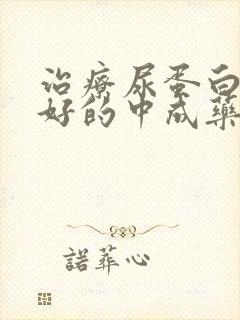 治療尿蛋白
好的中成藥
諾葬心